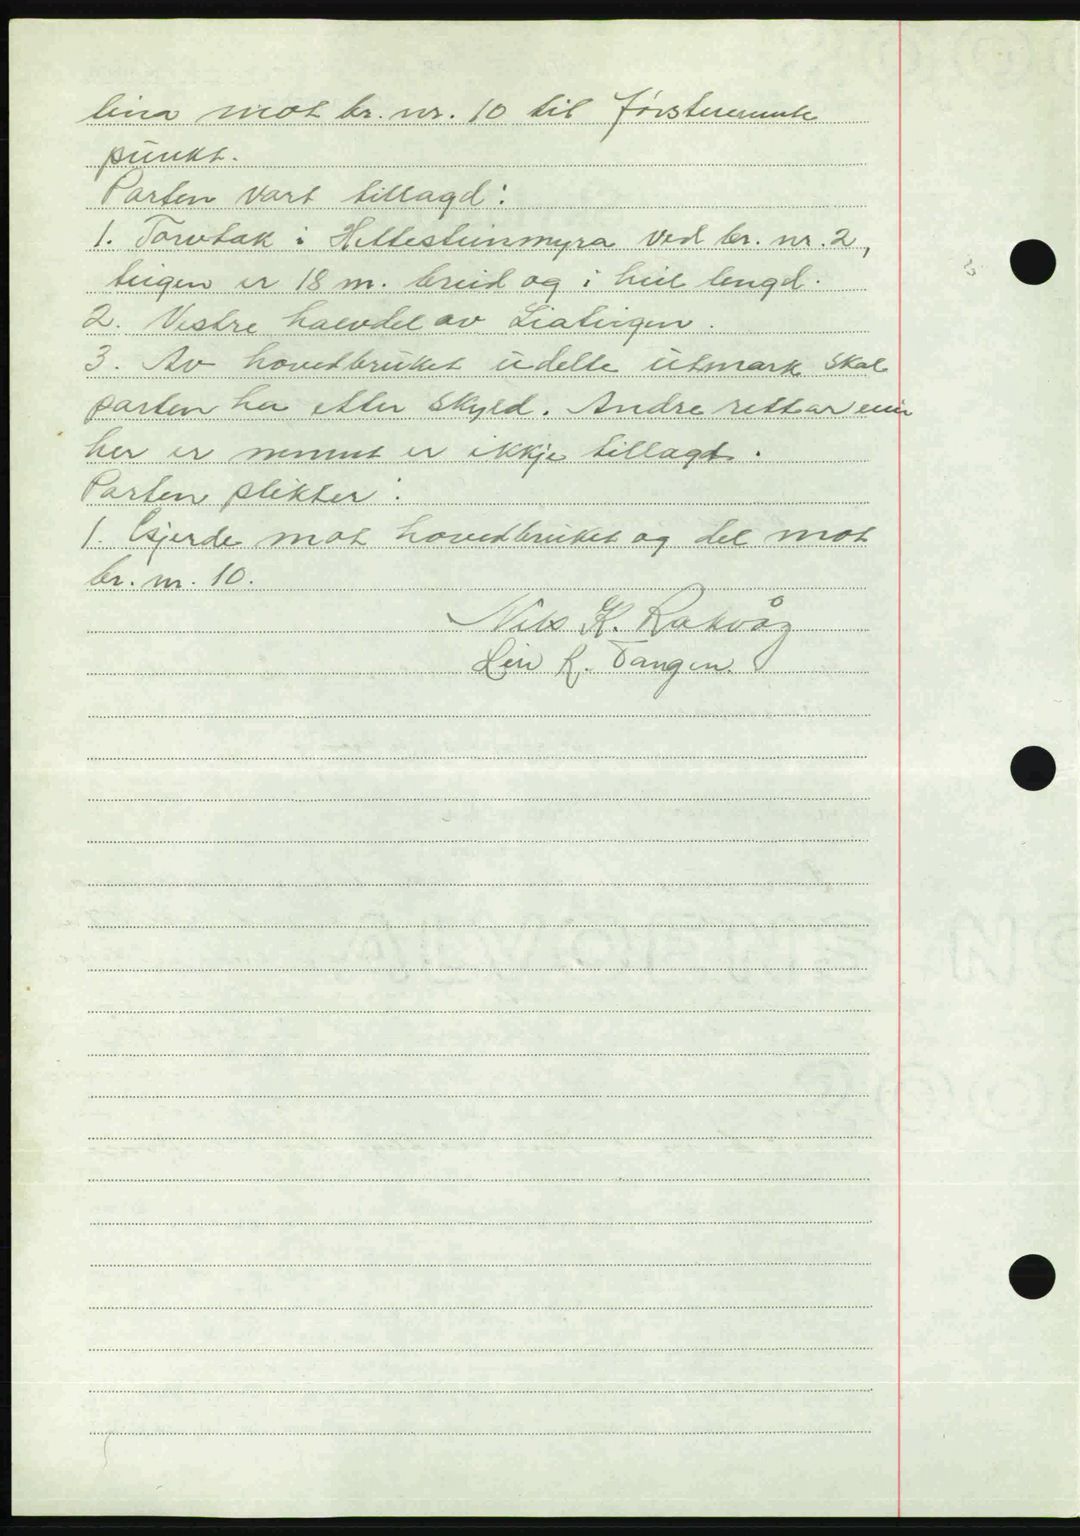 lina mot br. nr. 10 til førstnemnte
punkt.
Parten vart tillagd:
1. Torvtak i Hettesteinmyra ved br. nr. 2,
teigen er 18 m. breid og i heil lengd.
2. Vestre halvdel av Liateigen.
3. Av hovedbruket udelte utmark skal
parten ha etter skyld. Andre rettar enn
her er nemnt er ikkje tillagt.
Parten plikter:
1. Gjerde mot hovedbruket og del mot
br. nr. 10.
Nils K. Rakvåg
K. Tangen.